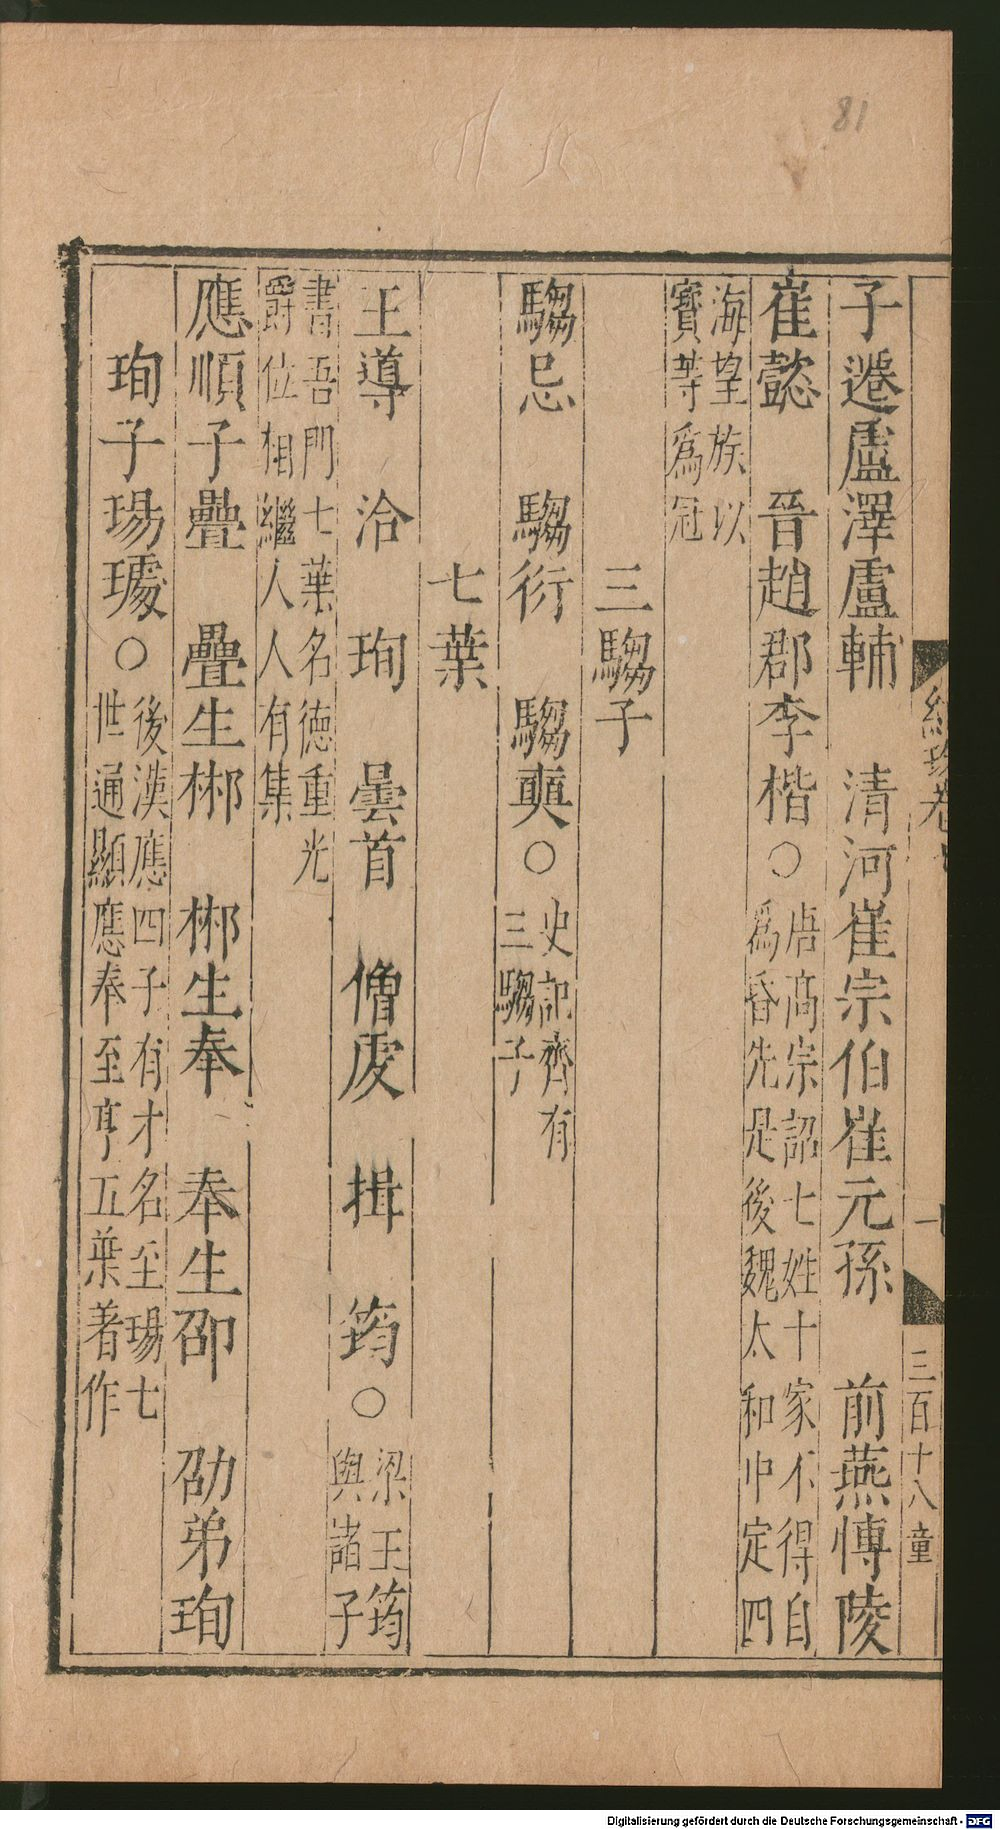 81
子遷盧澤盧輔　清河崔宗伯崔元孫　前燕慱陵
崔懿　晉趙郡李楷○唐高宗詔七姓十家不得自
爲昏先是後魏太和中定四
海望族以
寶等爲冠
三騶子
騶忌　騶衍　騶奭○史記齊有
三騶子
七葉
王導　洽　珣　曇首　僧虔　揖　筠○梁王筠
與諸子
書吾門七葉名德重光
爵位相繼人人有集
應順子疊　疊生郴　郴生奉　奉生邵　劭弟珣
珣子瑒璩○後漢應四子有才名至瑒七
世通顯應奉至亨五葉著作
三百十八童
Digitalisierung gefördert durch die Deutsche Forschungsgemeinschaft - DFG